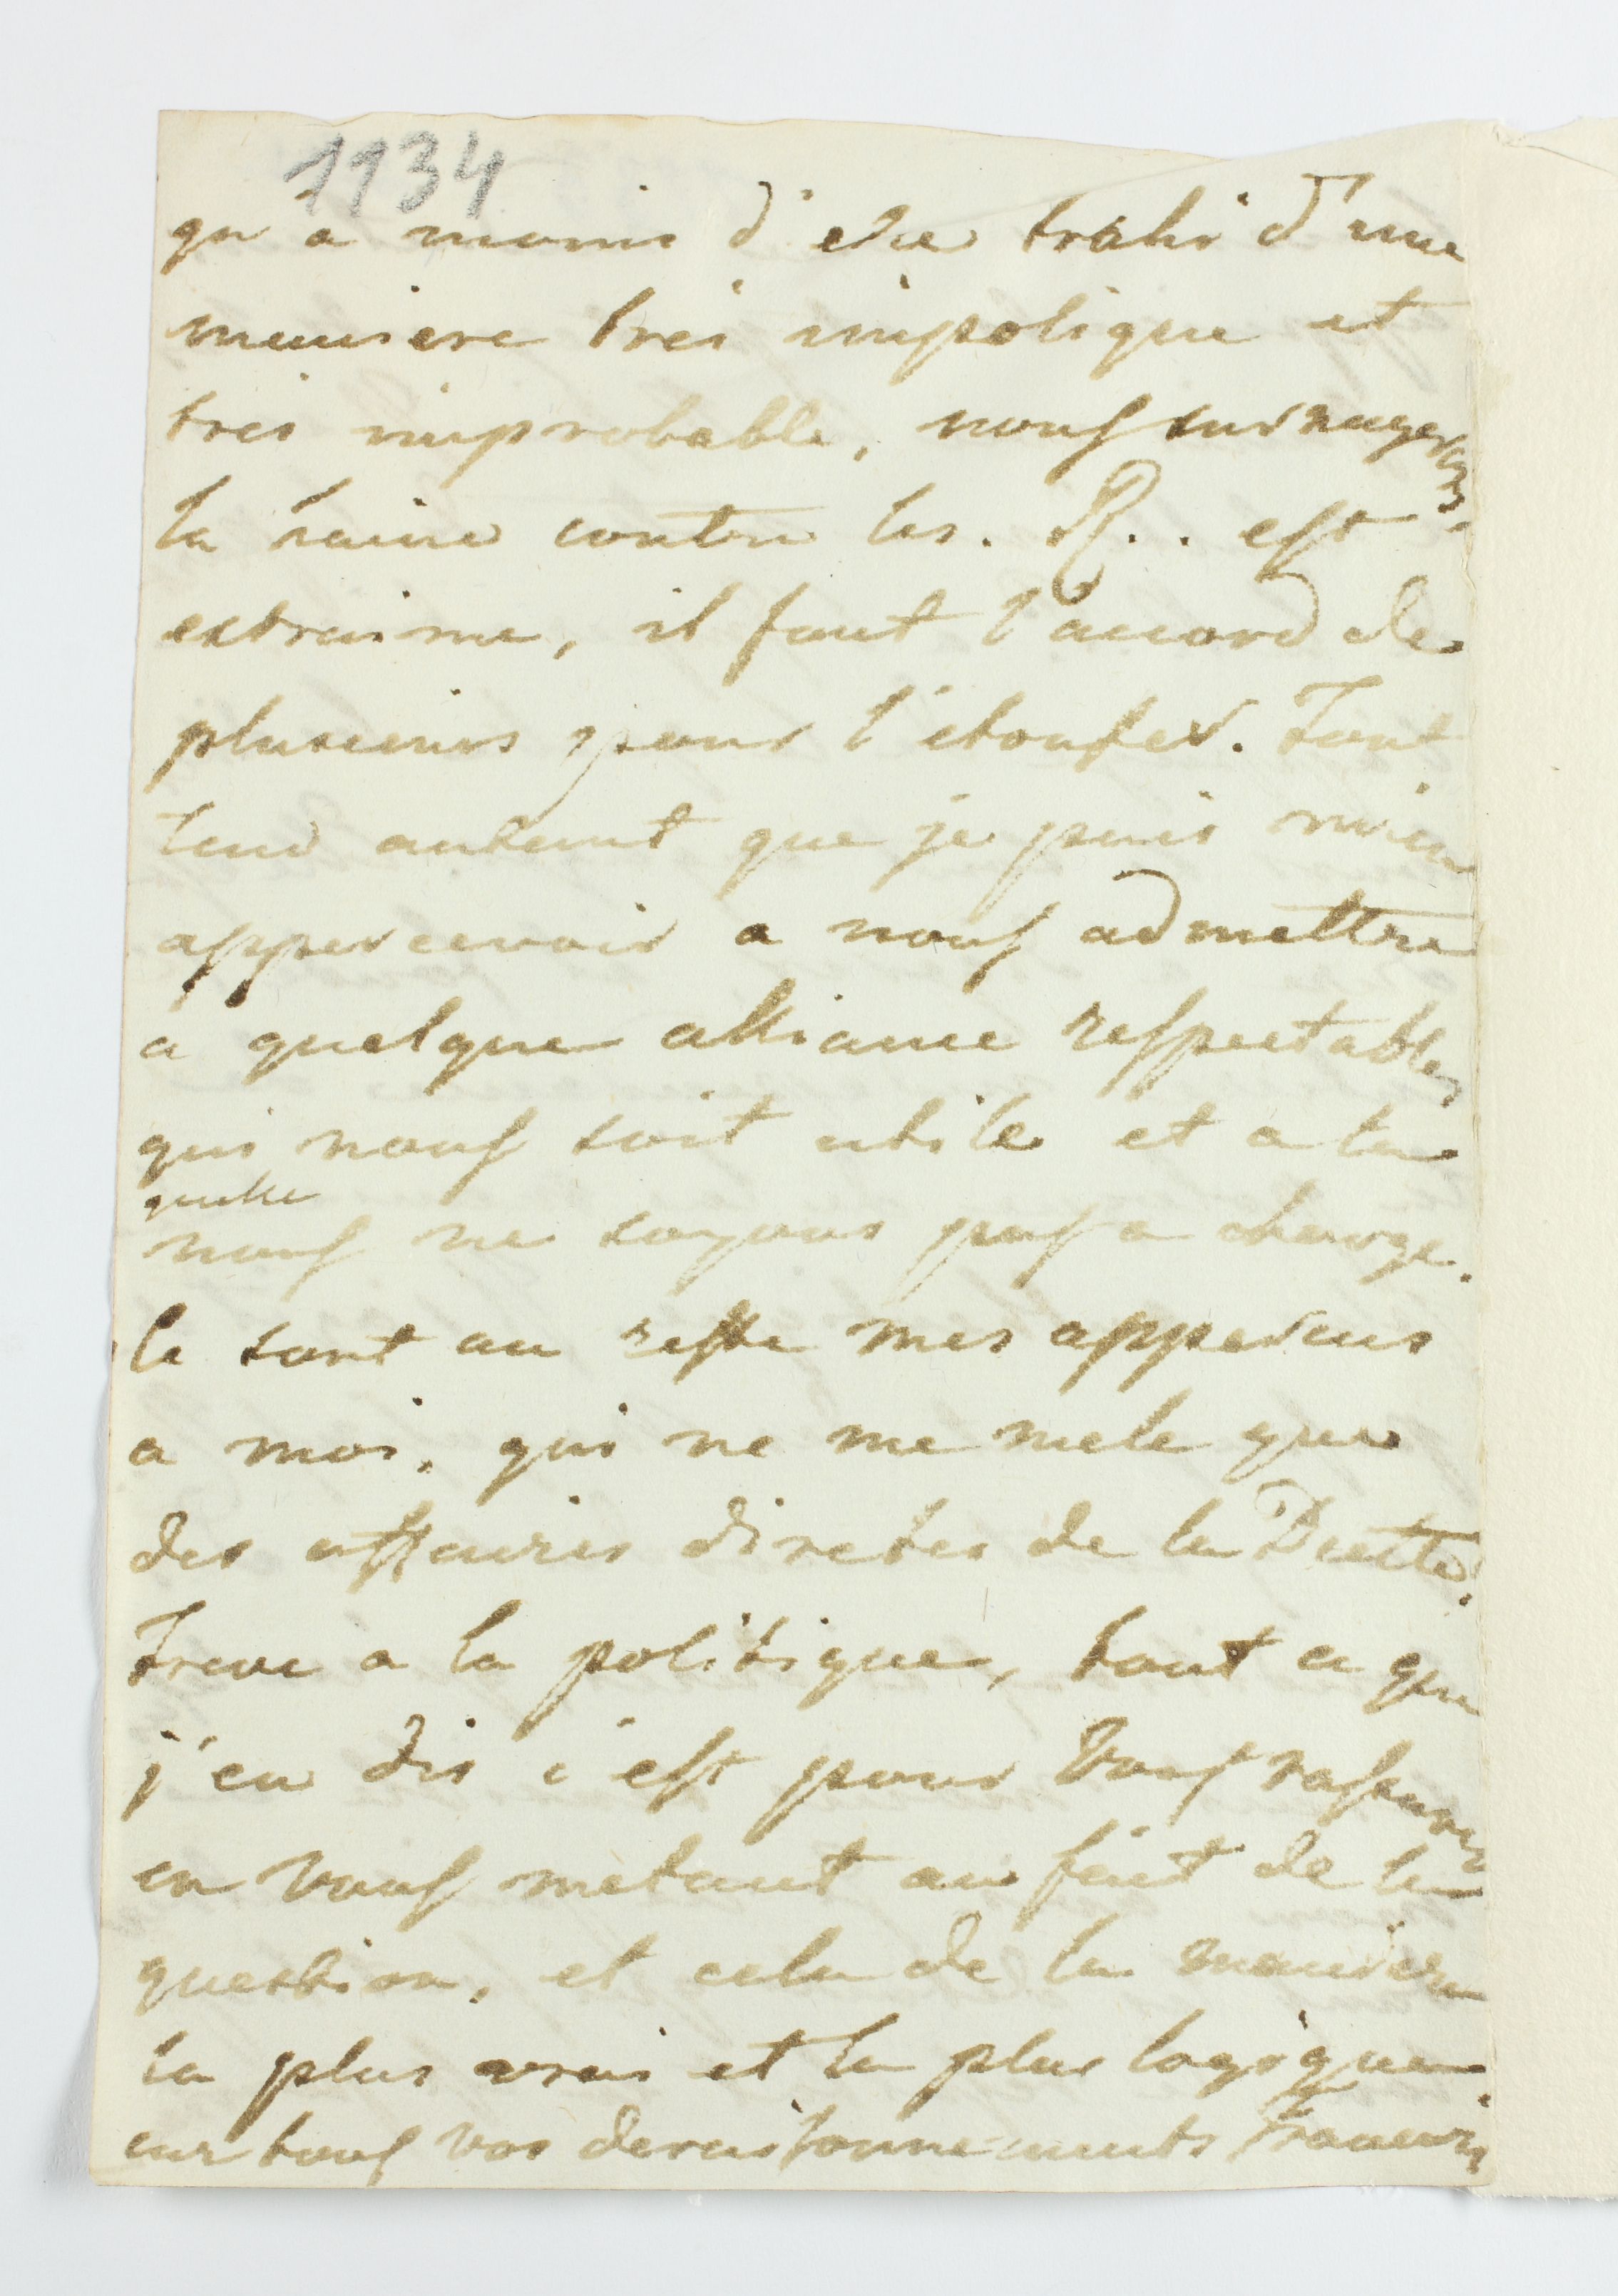 1134
qu a moins d'etre trahi d'une
maniere tres impolique et
tres improbable, nous surnagerons
la haine contre les. R.. est
extraime, il faut l'accord de
plusieurs pour l'etoufer. Tout
tend autant que je puis m'en
appercevoir a nous admettre
a quelque alliance respectable,
qui nous soit utile et a la
quelle
nous ne soyons pas a charge.
Ce sont au reste mes appercus
a moi, qui ne me mele que
des affaires directes de la Diette.
Treve a la politique, tout ce que
j'en dis c'est pour vous rassurer
en vous metant au fait de la
question, et cela de la maniere
la plus vrai et la plus logique.
car tous vos deraisonnements